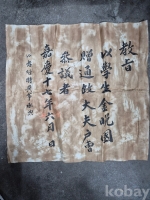 敎旨
以學生金
贈通政大夫戶曹
叅議者
嘉慶十七年六月 日
kobay